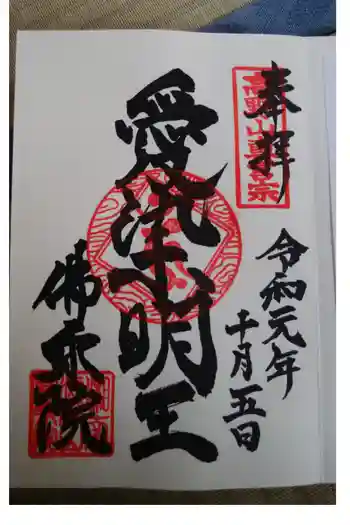 奉拝
高野山真言宗
令和元年
十月五日
愛染明王
佛乗院